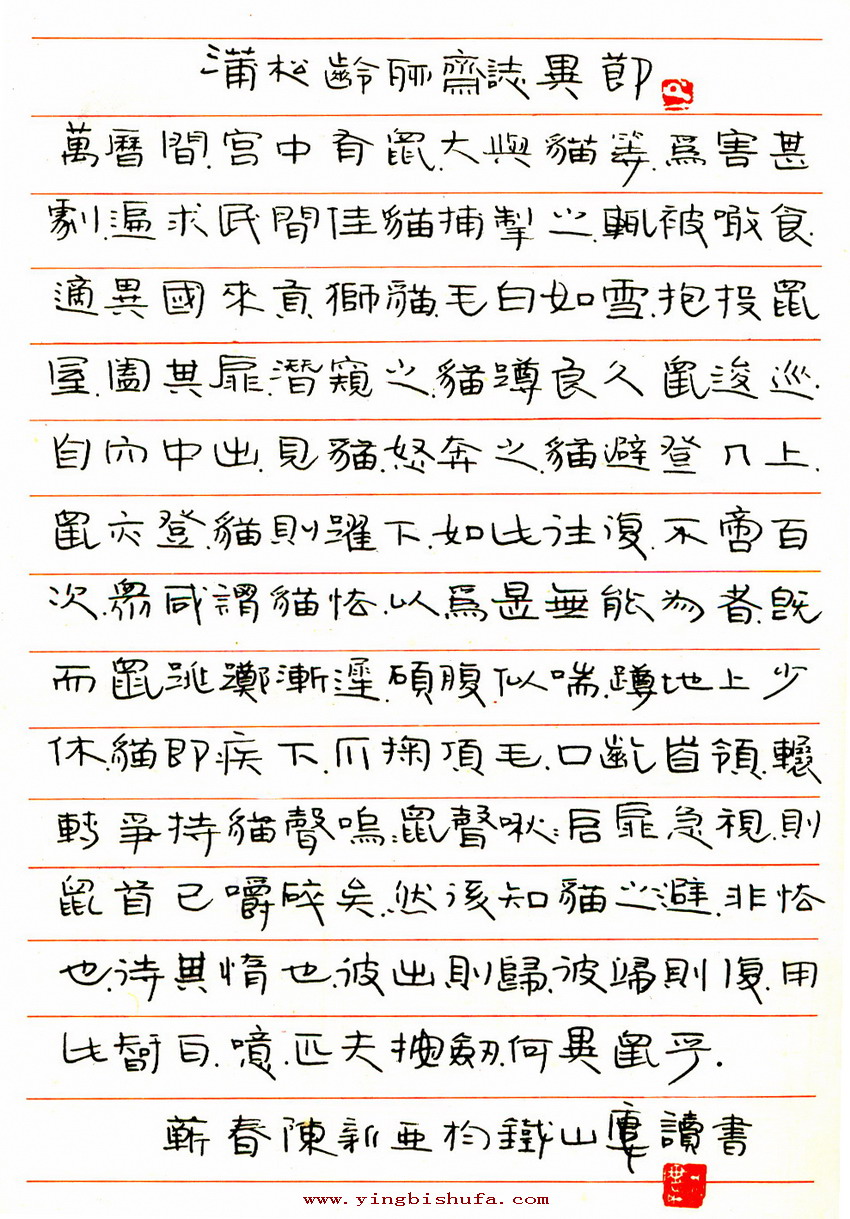 蒲松齡聊齋誌異節
萬曆間.宮中有鼠.大與貓等.爲害甚
劇.遍求民間佳貓捕掣之.輒被噉食.
適異國來貢獅貓.毛白如雪.抱投鼠
屋.闔其扉.潛窺之.貓蹲良久鼠逡巡.
自內中出.見貓.怒奔之.貓避登几上.
鼠亦登.貓則躍下.如此往復.不啻百
次.眾咸謂貓怯.以爲是無能為者.旣
而鼠跳擲漸遲.碩腹似喘.蹲地上少
休.貓即疾下.爪掬頂毛.口齕首領.輾
轉爭持貓聲嗚:鼠聲啾:啟扉急視.則
鼠首已嚼碎矣.然後知貓之避.非怯
也.待其惰也.彼出則歸.彼歸則復.用
此智耳.噫.匹夫按劍.何異鼠乎.
蘄春陳新亞於鐵山寓讀書
www.yingbishufa.com